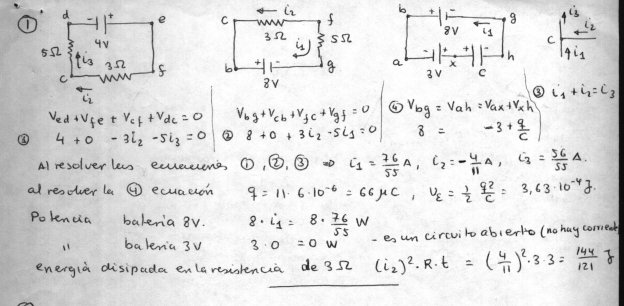 ①
d - + e
4V
5Ω i₃ 3Ω
c f
i₂
i₂
c f
3Ω
i₁ 5Ω
b + - g
8V
b + - g
8V i₁
a - + + - h
3V x C
i₃
c i₂
i₁
③ i₁ + i₂ = i₃
Ved + Vfe + Vcf + Vdc = 0
① 4 + 0 - 3i₂ - 5i₃ = 0
Vbg + Vcb + Vfc + Vgf = 0
② 8 + 0 + 3i₂ - 5i₁ = 0
④ Vbg = Vah = Vax + Vxh
8 = -3 + q/C
Al resolver las ecuaciones ①, ②, ③ ⇒ i₁ = 76/55 A, i₂ = -4/11 A, i₃ = 56/55 A.
al resolver la ④ ecuación q = 11·6·10⁻⁶ = 66 μC, Uε = 1/2 q²/C = 3,63·10⁻⁴ J.
Potencia batería 8V. 8·i₁ = 8·76/55 W
" batería 3V 3·0 = 0 W - es un circuito abierto (no hay corriente
energía disipada en la resistencia de 3Ω (i₂)²·R·t = (4/11)²·3·3 = 144/121 J